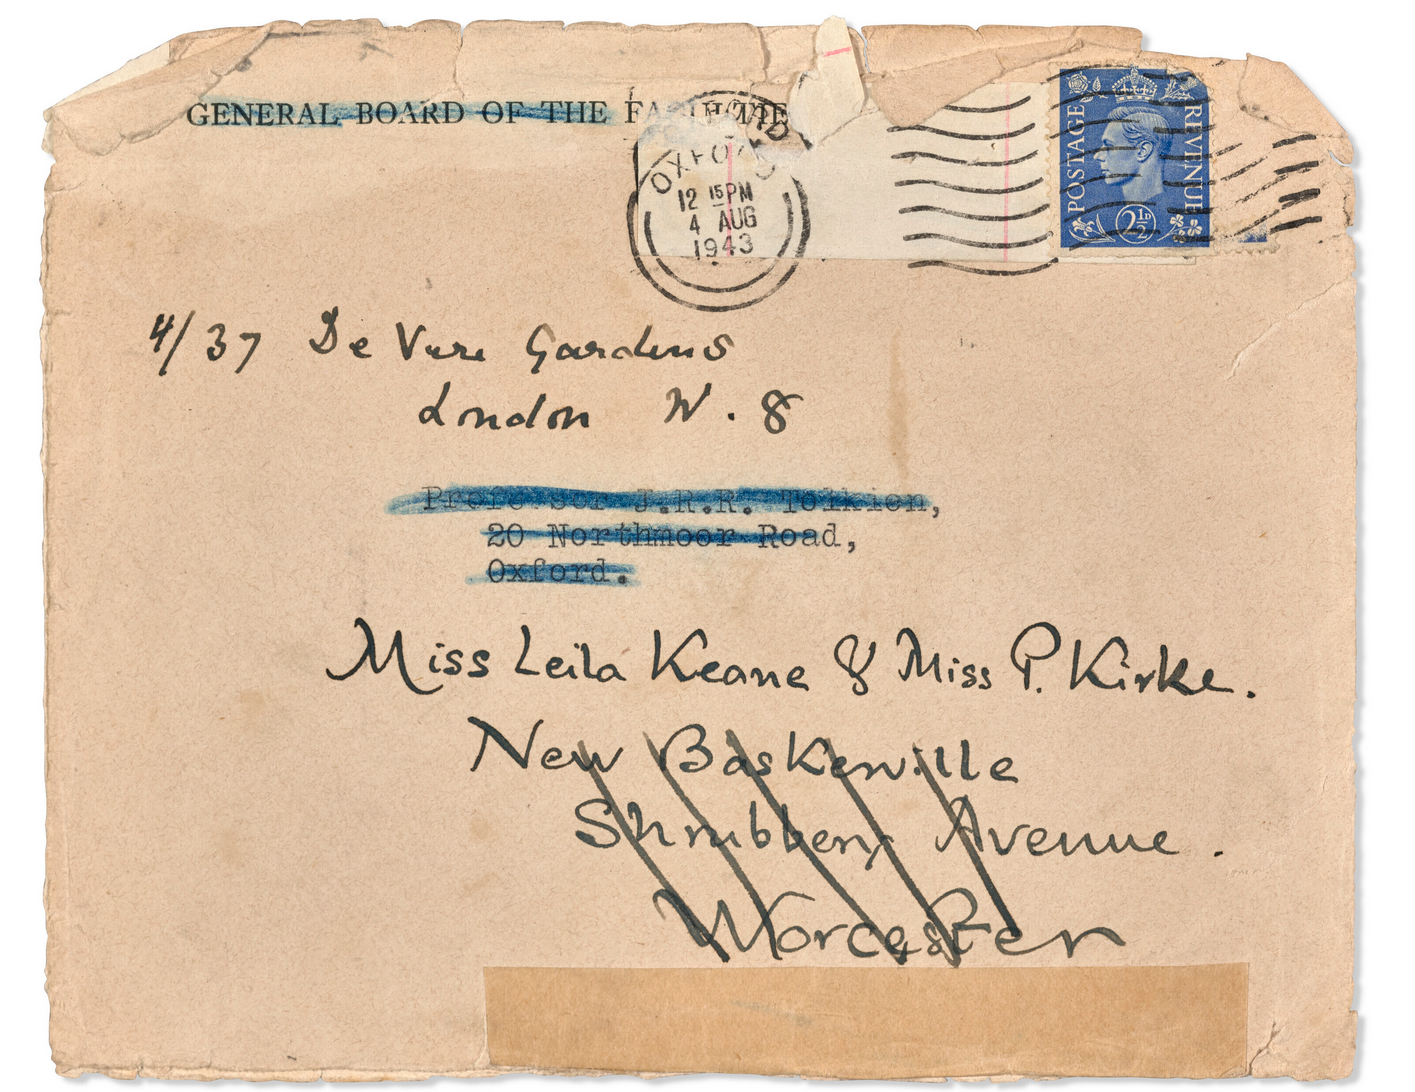 GENERAL BOARD OF THE
OXFORD
12 15PM
4 AUG
1943
POSTAGE
REVENUE
2½D
4/37 De Vere Gardens
London W. 8
Professor J.R.R. Tolkien,
20 Northmoor Road,
Oxford.
Miss Leila Keane & Miss P. Kirke.
New Baskerville
Shrubbery Avenue.
Worcester